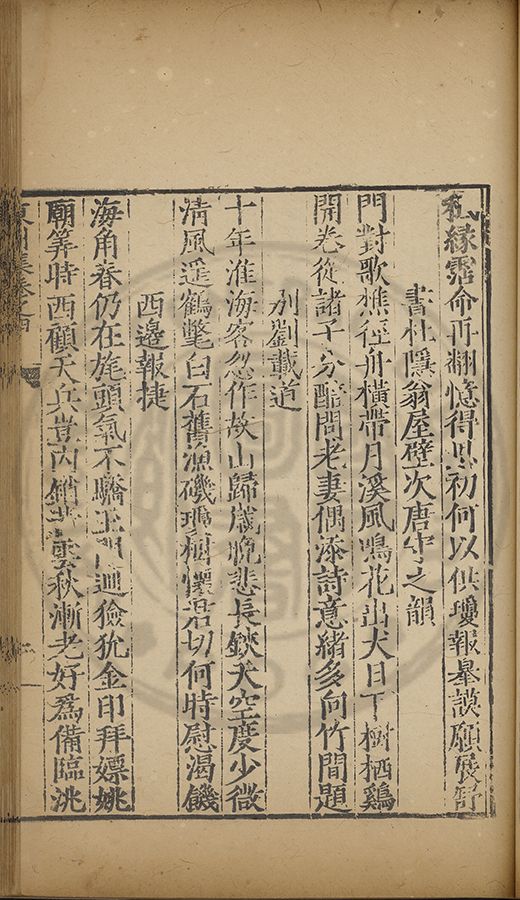 緣霑命再翻憶得思初何以供瓊報皋謨願展舒
書杜隱翁屋壁次唐守之韻
門對歌樵徑舟橫帶月溪風鳴花出犬日下樹栖鷄
開卷從諸子分醅問老妻偶添詩意緒多向竹間題
別劉載道
十年淮海客忽作故山歸歲晚悲長鋏天空度少微
清風遥鶴氅白石舊漁磯瓊樹懷君切何時慰渴饑
西邊報捷
海角春仍在旄頭氣不驕玉門迴獫狁金印拜嫖姚
廟筭時西顧天兵豈内銷雲秋漸老好爲備臨洮
集卷之四